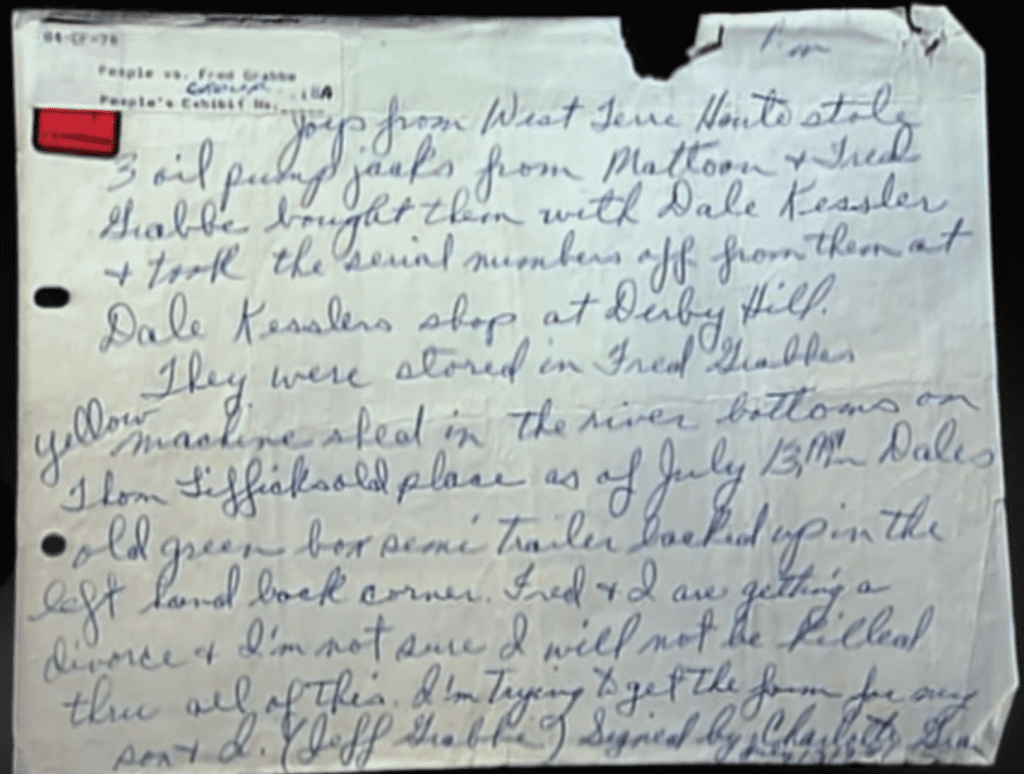 84-CF-78
People vs. Fred Grabbe
Group
People's Exhibit No. 18A
P.M
Joys from West Terre Haute stole
3 oil pump jacks from Mattoon & Fred
Grabbe bought them with Dale Kessler
& took the serial numbers off from them at
Dale Kesslers shop at Derby Hill.
They were stored in Fred Grabbes
yellow machine shed in the river bottoms on
Thom Tifficks old place as of July 13, Dales
old green box semi trailer backed up in the
left hand back corner. Fred & I are getting a
divorce & I'm not sure I will not be killed
thru all of this. I'm trying to get the farm for my
son & I. (Jeff Grabbe) Signed by Charlotte Gra